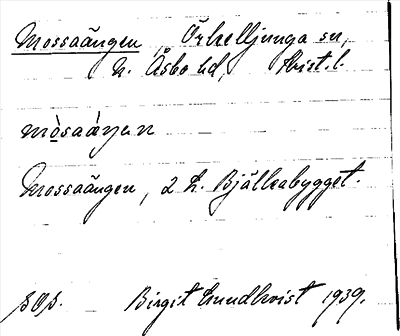 Mossaängen, Örkelljunga sn,
N. Åsbo hd, Krist. l.
mòsaáŋen
Mossaängen, 2 h. Bjälkabygget.
Birgit Lundkvist 1939.